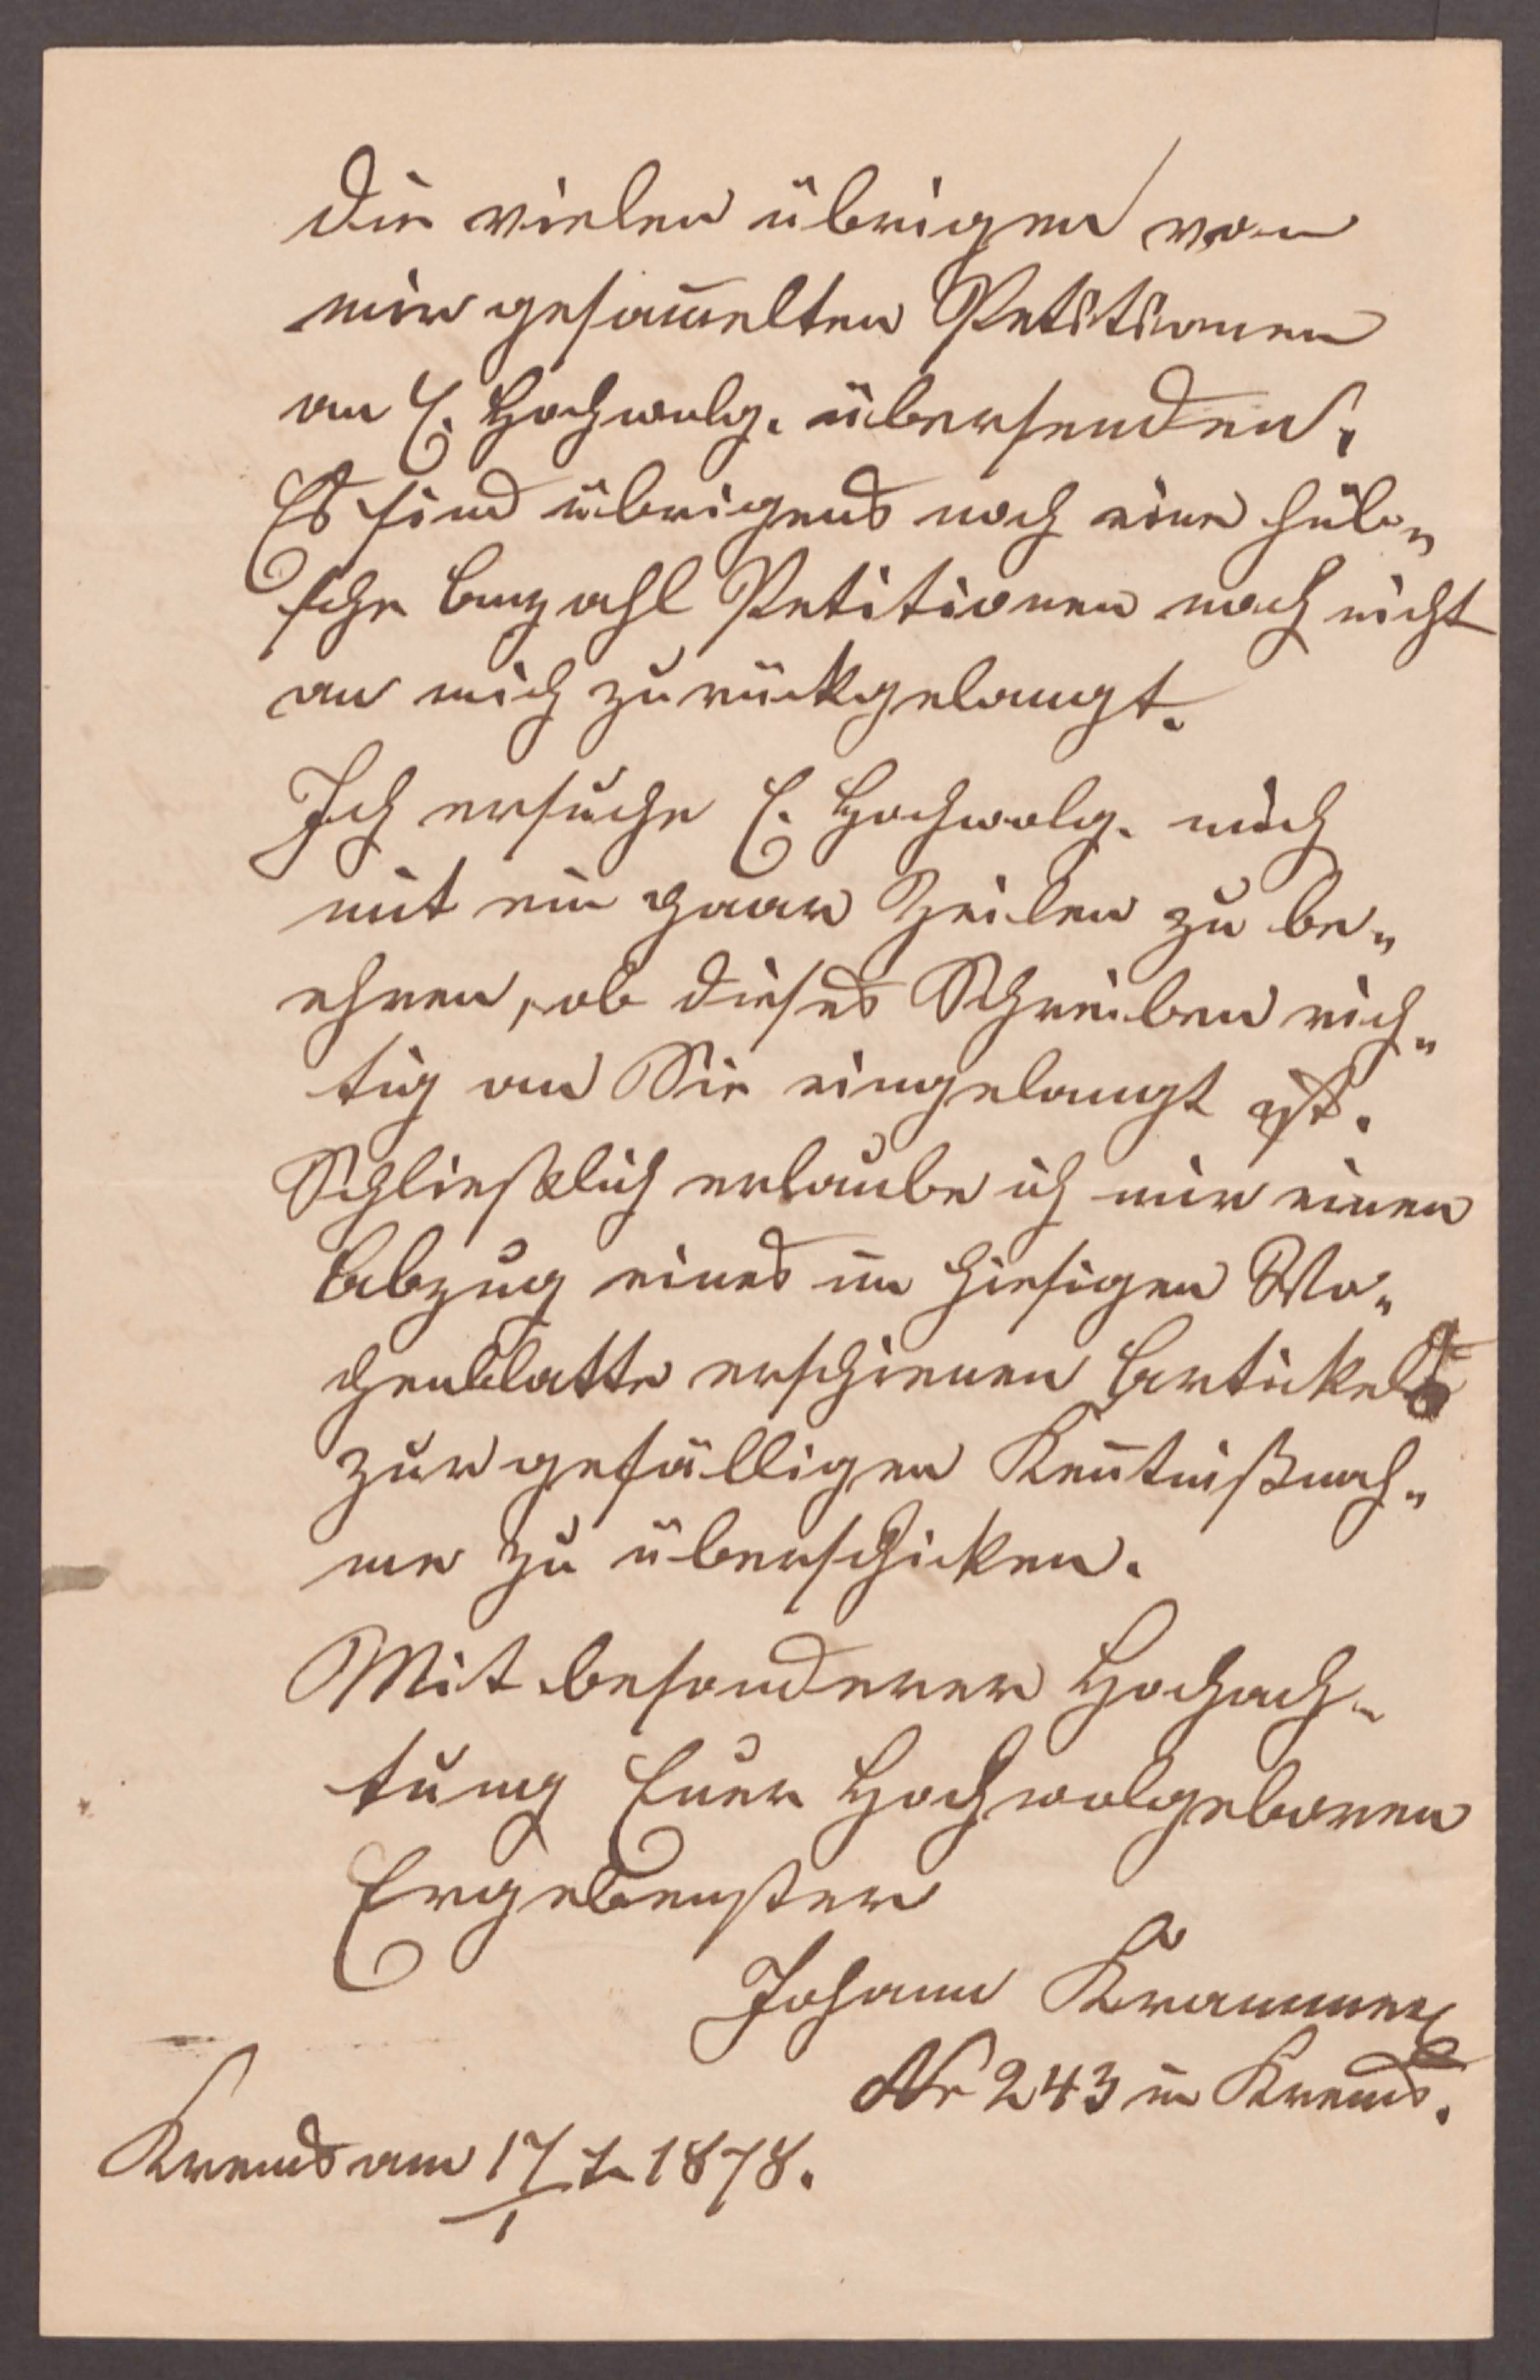 die vielen übrigen von
mir gesam̅elten Petitionen
an E. Hochwolg. übersenden.
Es sind übrigens noch eine hüb„
sche Anzahl Petitionen noch nicht
an mich zurückgelangt.
Ich ersuche E. Hochwolg. mich
mit ein paar Zeilen zu be„
ehren, ob dieses Schreiben rich„
tig an Sie eingelangt ist.
Schließlich erlaube ich mir einen
Abzug eines im hiesigen Wo„
chenblatte erschienen Artickels
zur gefälligen Ken̅tnißnah„
me zu überschicken.
Mit besonderer Hochach„
tung Euer Hochwolgeboren
Ergebenster
Johann Krammer
Nr 243 in Krems.
Krems am 17/1 1878.